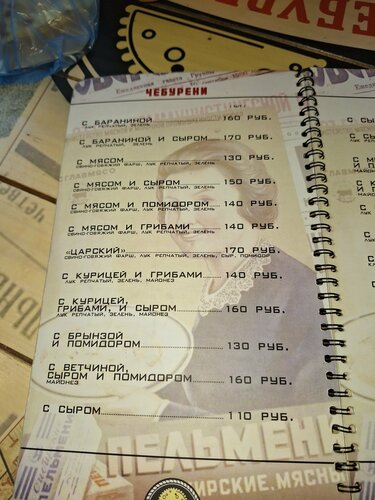 ЧЕБУРЕНИ
С БАРАНИНОЙ 160 РУБ.
ЛУК РЕПЧАТЫЙ, ЗЕЛЕНЬ
С БАРАНИНОЙ И СЫРОМ 170 РУБ.
ЛУК РЕПЧАТЫЙ, ЗЕЛЕНЬ
С МЯСОМ 130 РУБ.
СВИНО-ГОВЯЖИЙ ФАРШ, ЛУК РЕПЧАТЫЙ, ЗЕЛЕНЬ
С МЯСОМ И СЫРОМ 150 РУБ.
СВИНО-ГОВЯЖИЙ ФАРШ, ЛУК РЕПЧАТЫЙ, ЗЕЛЕНЬ
С МЯСОМ И ПОМИДОРОМ 140 РУБ.
СВИНО-ГОВЯЖИЙ ФАРШ, ЛУК РЕПЧАТЫЙ, ЗЕЛЕНЬ
С МЯСОМ И ГРИБАМИ 140 РУБ.
СВИНО-ГОВЯЖИЙ ФАРШ, ЛУК РЕПЧАТЫЙ, ЗЕЛЕНЬ
«ЦАРСКИЙ» 170 РУБ.
СВИНО-ГОВЯЖИЙ ФАРШ, ЛУК РЕПЧАТЫЙ, ЗЕЛЕНЬ, СЫР, ПОМИДОР
С КУРИЦЕЙ И ГРИБАМИ 140 РУБ.
ЛУК РЕПЧАТЫЙ, ЗЕЛЕНЬ, МАЙОНЕЗ
С КУРИЦЕЙ,
ГРИБАМИ, И СЫРОМ 160 РУБ.
ЛУК РЕПЧАТЫЙ, ЗЕЛЕНЬ, МАЙОНЕЗ
С БРЫНЗОЙ
И ПОМИДОРОМ 130 РУБ.
С ВЕТЧИНОЙ,
СЫРОМ И ПОМИДОРОМ 160 РУБ.
МАЙОНЕЗ
С СЫРОМ 110 РУБ.
ПЕЛЬМЕНИ